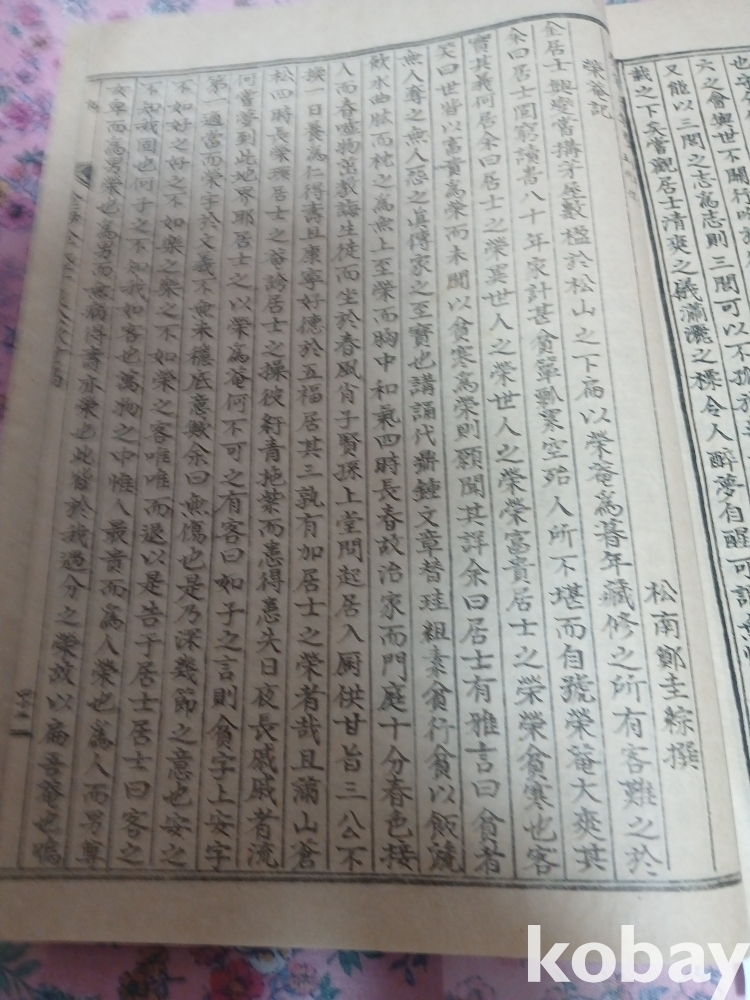 也
六之會與世不開行
又能以三閭之志爲志則三閭可以不孤
載之下矣當觀居士清爽之儀瀟灑之標令人醉夢自醒可謂
榮菴記
松南鄭圭綜撰
金居士 甞搆芽屋數楹於松山之下扁以榮菴爲暮年藏修之所有客難之於
余曰居士固窮讀書八十年家計甚貧簞瓢累空殆人所不堪而自號榮菴大爽其
實其義何居余曰居士之榮異世人之榮世人之榮榮富貴居士之榮榮貧寒也客
笑曰世皆以富貴爲榮而未聞以貧寒爲榮則願聞其詳余曰居士有雅言曰貧者
無人奪之無人惡之眞傳家之至寶也講誦代鼎鍾文章替珪組素貧行貧以飯流
飲水曲肱而枕之爲無上至榮而胸中和氣四時長春故治家而門庭十分春色接
人而春噓物茁敎誨生徒而坐於春風肖子賢孫上堂問起居入厨供甘旨三公不
換一日養爲仁得壽且康寧好德於五福居其三孰有加居士之榮者哉且滿山蒼
松四時長榮 居士之菴 居士之操彼紆青拖紫而患得患失日夜長戚戚者流
何嘗夢到此地界耶居士之以榮爲菴何不可之有客曰如子之言則貧字上安字
第一適當而榮字於文義不無未穩底意歟余曰無傷也是乃深幾節之意也安之
不如好之好之不如樂之樂之不如榮之客唯唯而退以是告于居士居士曰客之
不知我固也何子之不知我如客也萬物之中惟人最貴而爲人榮也爲人而男尊
女卑而爲男榮也爲男而 得壽亦榮也此皆於我過分之榮故以扁吾菴也嗚